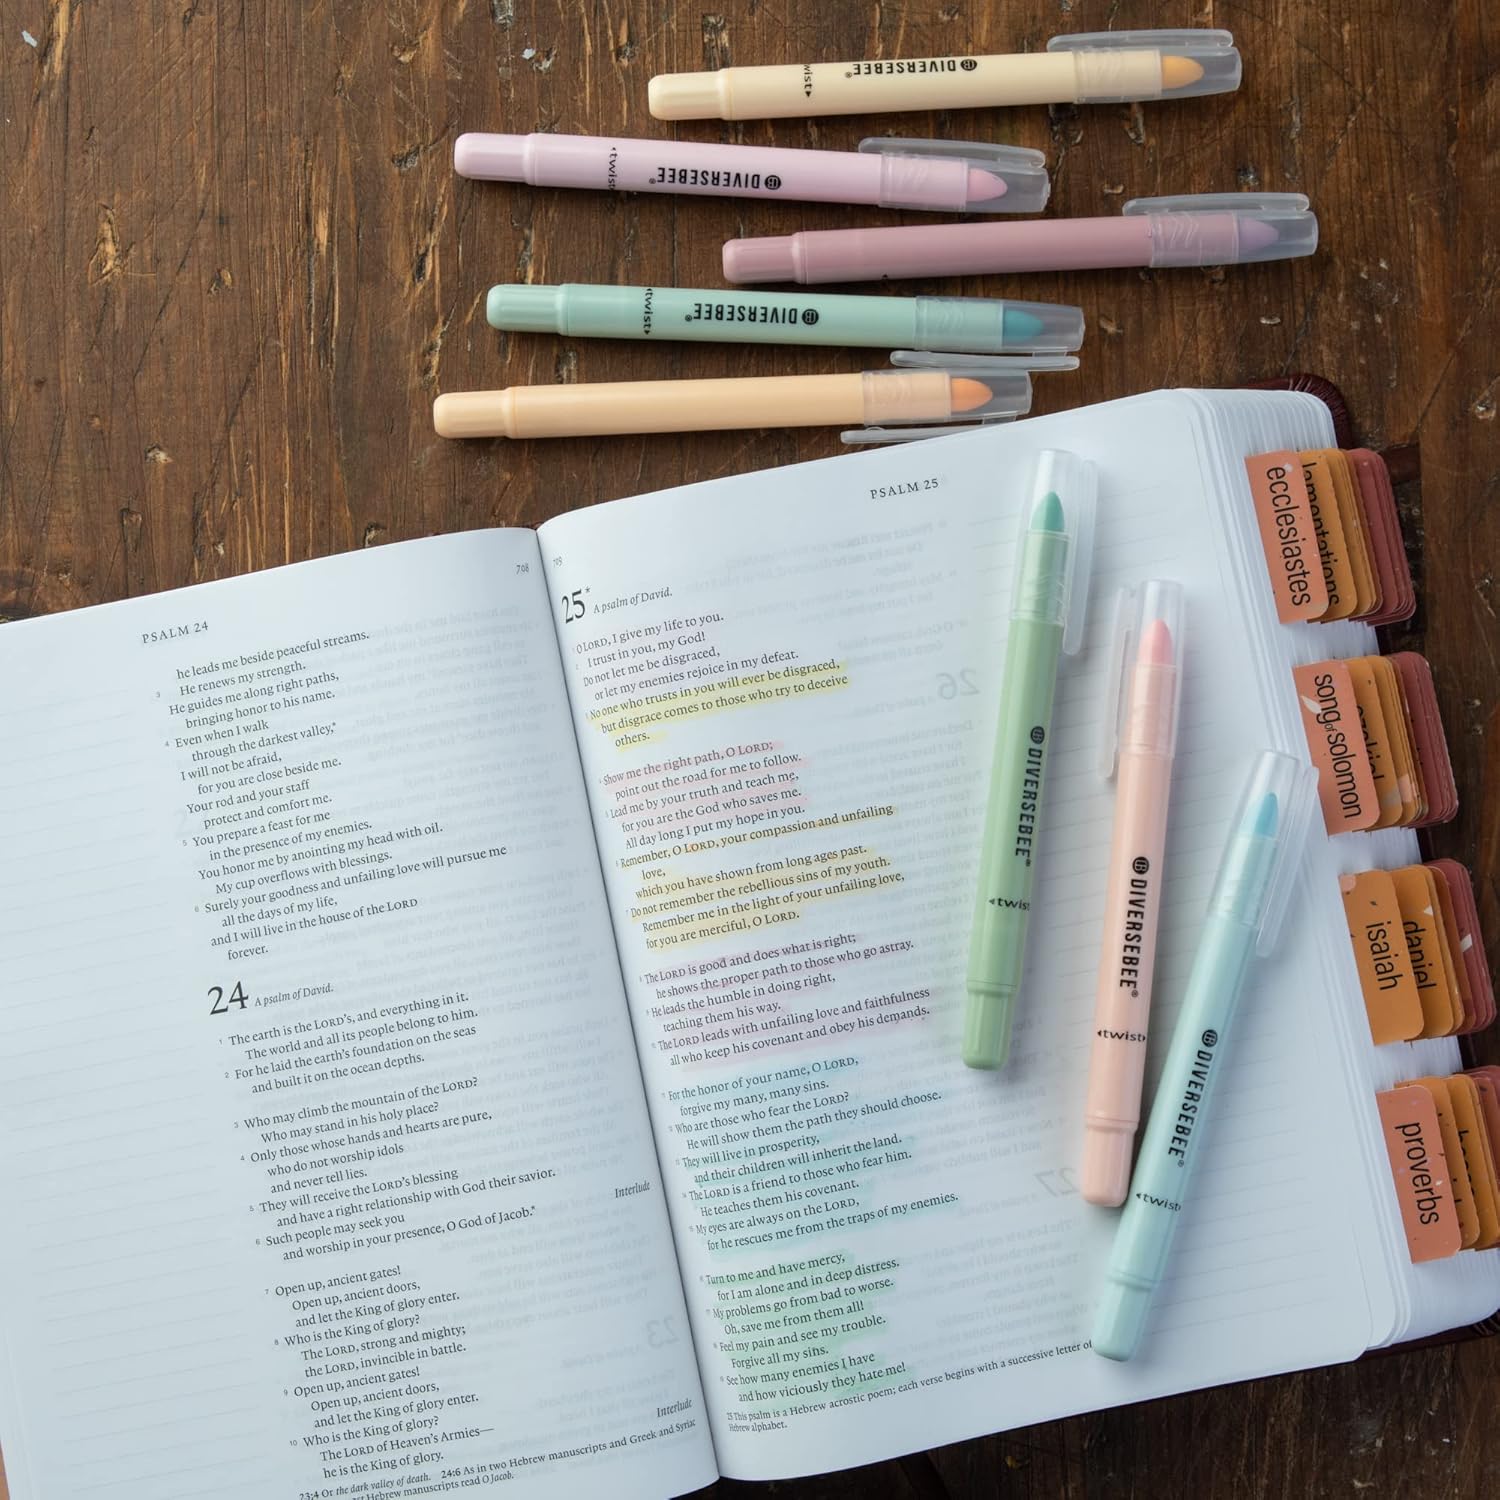 twist▸
DIVERSEBEE®
◂twist▸
DIVERSEBEE®
◂twist▸
DIVERSEBEE®
708
PSALM 24
he leads me beside peaceful streams.
3 He renews my strength.
He guides me along right paths,
bringing honor to his name.
4 Even when I walk
through the darkest valley,*
I will not be afraid,
for you are close beside me.
Your rod and your staff
protect and comfort me.
5 You prepare a feast for me
in the presence of my enemies.
You honor me by anointing my head with oil.
My cup overflows with blessings.
6 Surely your goodness and unfailing love will pursue me
all the days of my life,
and I will live in the house of the LORD
forever.
24 A psalm of David.
1 The earth is the LORD's, and everything in it.
The world and all its people belong to him.
2 For he laid the earth's foundation on the seas
and built it on the ocean depths.
3 Who may climb the mountain of the LORD?
Who may stand in his holy place?
4 Only those whose hands and hearts are pure,
who do not worship idols
and never tell lies.
5 They will receive the LORD's blessing
and have a right relationship with God their savior.
6 Such people may seek you
and worship in your presence, O God of Jacob.*
Interlude
7 Open up, ancient gates!
Open up, ancient doors,
and let the King of glory enter.
8 Who is the King of glory?
The LORD, strong and mighty;
the LORD, invincible in battle.
9 Open up, ancient gates!
Open up, ancient doors,
and let the King of glory enter.
10 Who is the King of glory?
The LORD of Heaven's Armies—
he is the King of glory.
Interlude
23:4 Or the dark valley of death. 24:6 As in two Hebrew manuscripts and Greek and Syriac
Hebrew manuscripts read O Jacob.
709
PSALM 25
25* A psalm of David.
1 O LORD, I give my life to you.
2 I trust in you, my God!
Do not let me be disgraced,
or let my enemies rejoice in my defeat.
3 No one who trusts in you will ever be disgraced,
but disgrace comes to those who try to deceive
others.
4 Show me the right path, O LORD;
point out the road for me to follow.
5 Lead me by your truth and teach me,
for you are the God who saves me.
All day long I put my hope in you.
6 Remember, O LORD, your compassion and unfailing
love,
which you have shown from long ages past.
7 Do not remember the rebellious sins of my youth.
Remember me in the light of your unfailing love,
for you are merciful, O LORD.
8 The LORD is good and does what is right;
he shows the proper path to those who go astray.
9 He leads the humble in doing right,
teaching them his way.
10 The LORD leads with unfailing love and faithfulness
all who keep his covenant and obey his demands.
11 For the honor of your name, O LORD,
forgive my many, many sins.
12 Who are those who fear the LORD?
He will show them the path they should choose.
13 They will live in prosperity,
and their children will inherit the land.
14 The LORD is a friend to those who fear him.
He teaches them his covenant.
15 My eyes are always on the LORD,
for he rescues me from the traps of my enemies.
16 Turn to me and have mercy,
for I am alone and in deep distress.
17 My problems go from bad to worse.
Oh, save me from them all!
18 Feel my pain and see my trouble.
Forgive all my sins.
19 See how many enemies I have
and how viciously they hate me!
25 This psalm is a Hebrew acrostic poem; each verse begins with a successive letter of
Hebrew alphabet.
DIVERSEBEE®
◂twist
DIVERSEBEE®
◂twist▸
DIVERSEBEE®
◂twist
ecclesiastes
lamentations
song of solomon
isaiah
daniel
proverbs